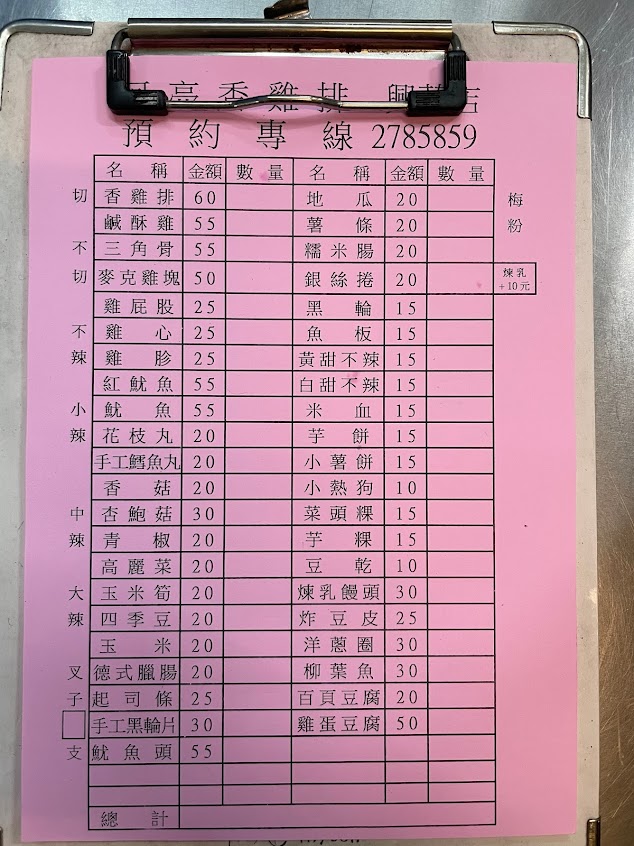 亮香雞排 興華店
預約專線 2785859
名稱 金額 數量 名稱 金額 數量
切 香雞排 60 地瓜 20 梅
鹹酥雞 55 薯條 20 粉
不 三角骨 55 糯米腸 20
切 麥克雞塊 50 銀絲捲 20 煉乳+10元
雞屁股 25 黑輪 15
不 雞心 25 魚板 15
辣 雞胗 25 黃甜不辣 15
紅魷魚 55 白甜不辣 15
小 魷魚 55 米血 15
辣 花枝丸 20 芋餅 15
手工鱈魚丸 20 小薯餅 15
香菇 20 小熱狗 10
中 杏鮑菇 30 菜頭粿 15
辣 青椒 20 芋粿 15
高麗菜 20 豆乾 10
大 玉米筍 20 煉乳饅頭 30
辣 四季豆 20 炸豆皮 25
玉米 20 洋蔥圈 30
叉 德式臘腸 20 柳葉魚 30
子 起司條 25 百頁豆腐 20
手工黑輪片 30 雞蛋豆腐 50
支 魷魚頭 55
總計